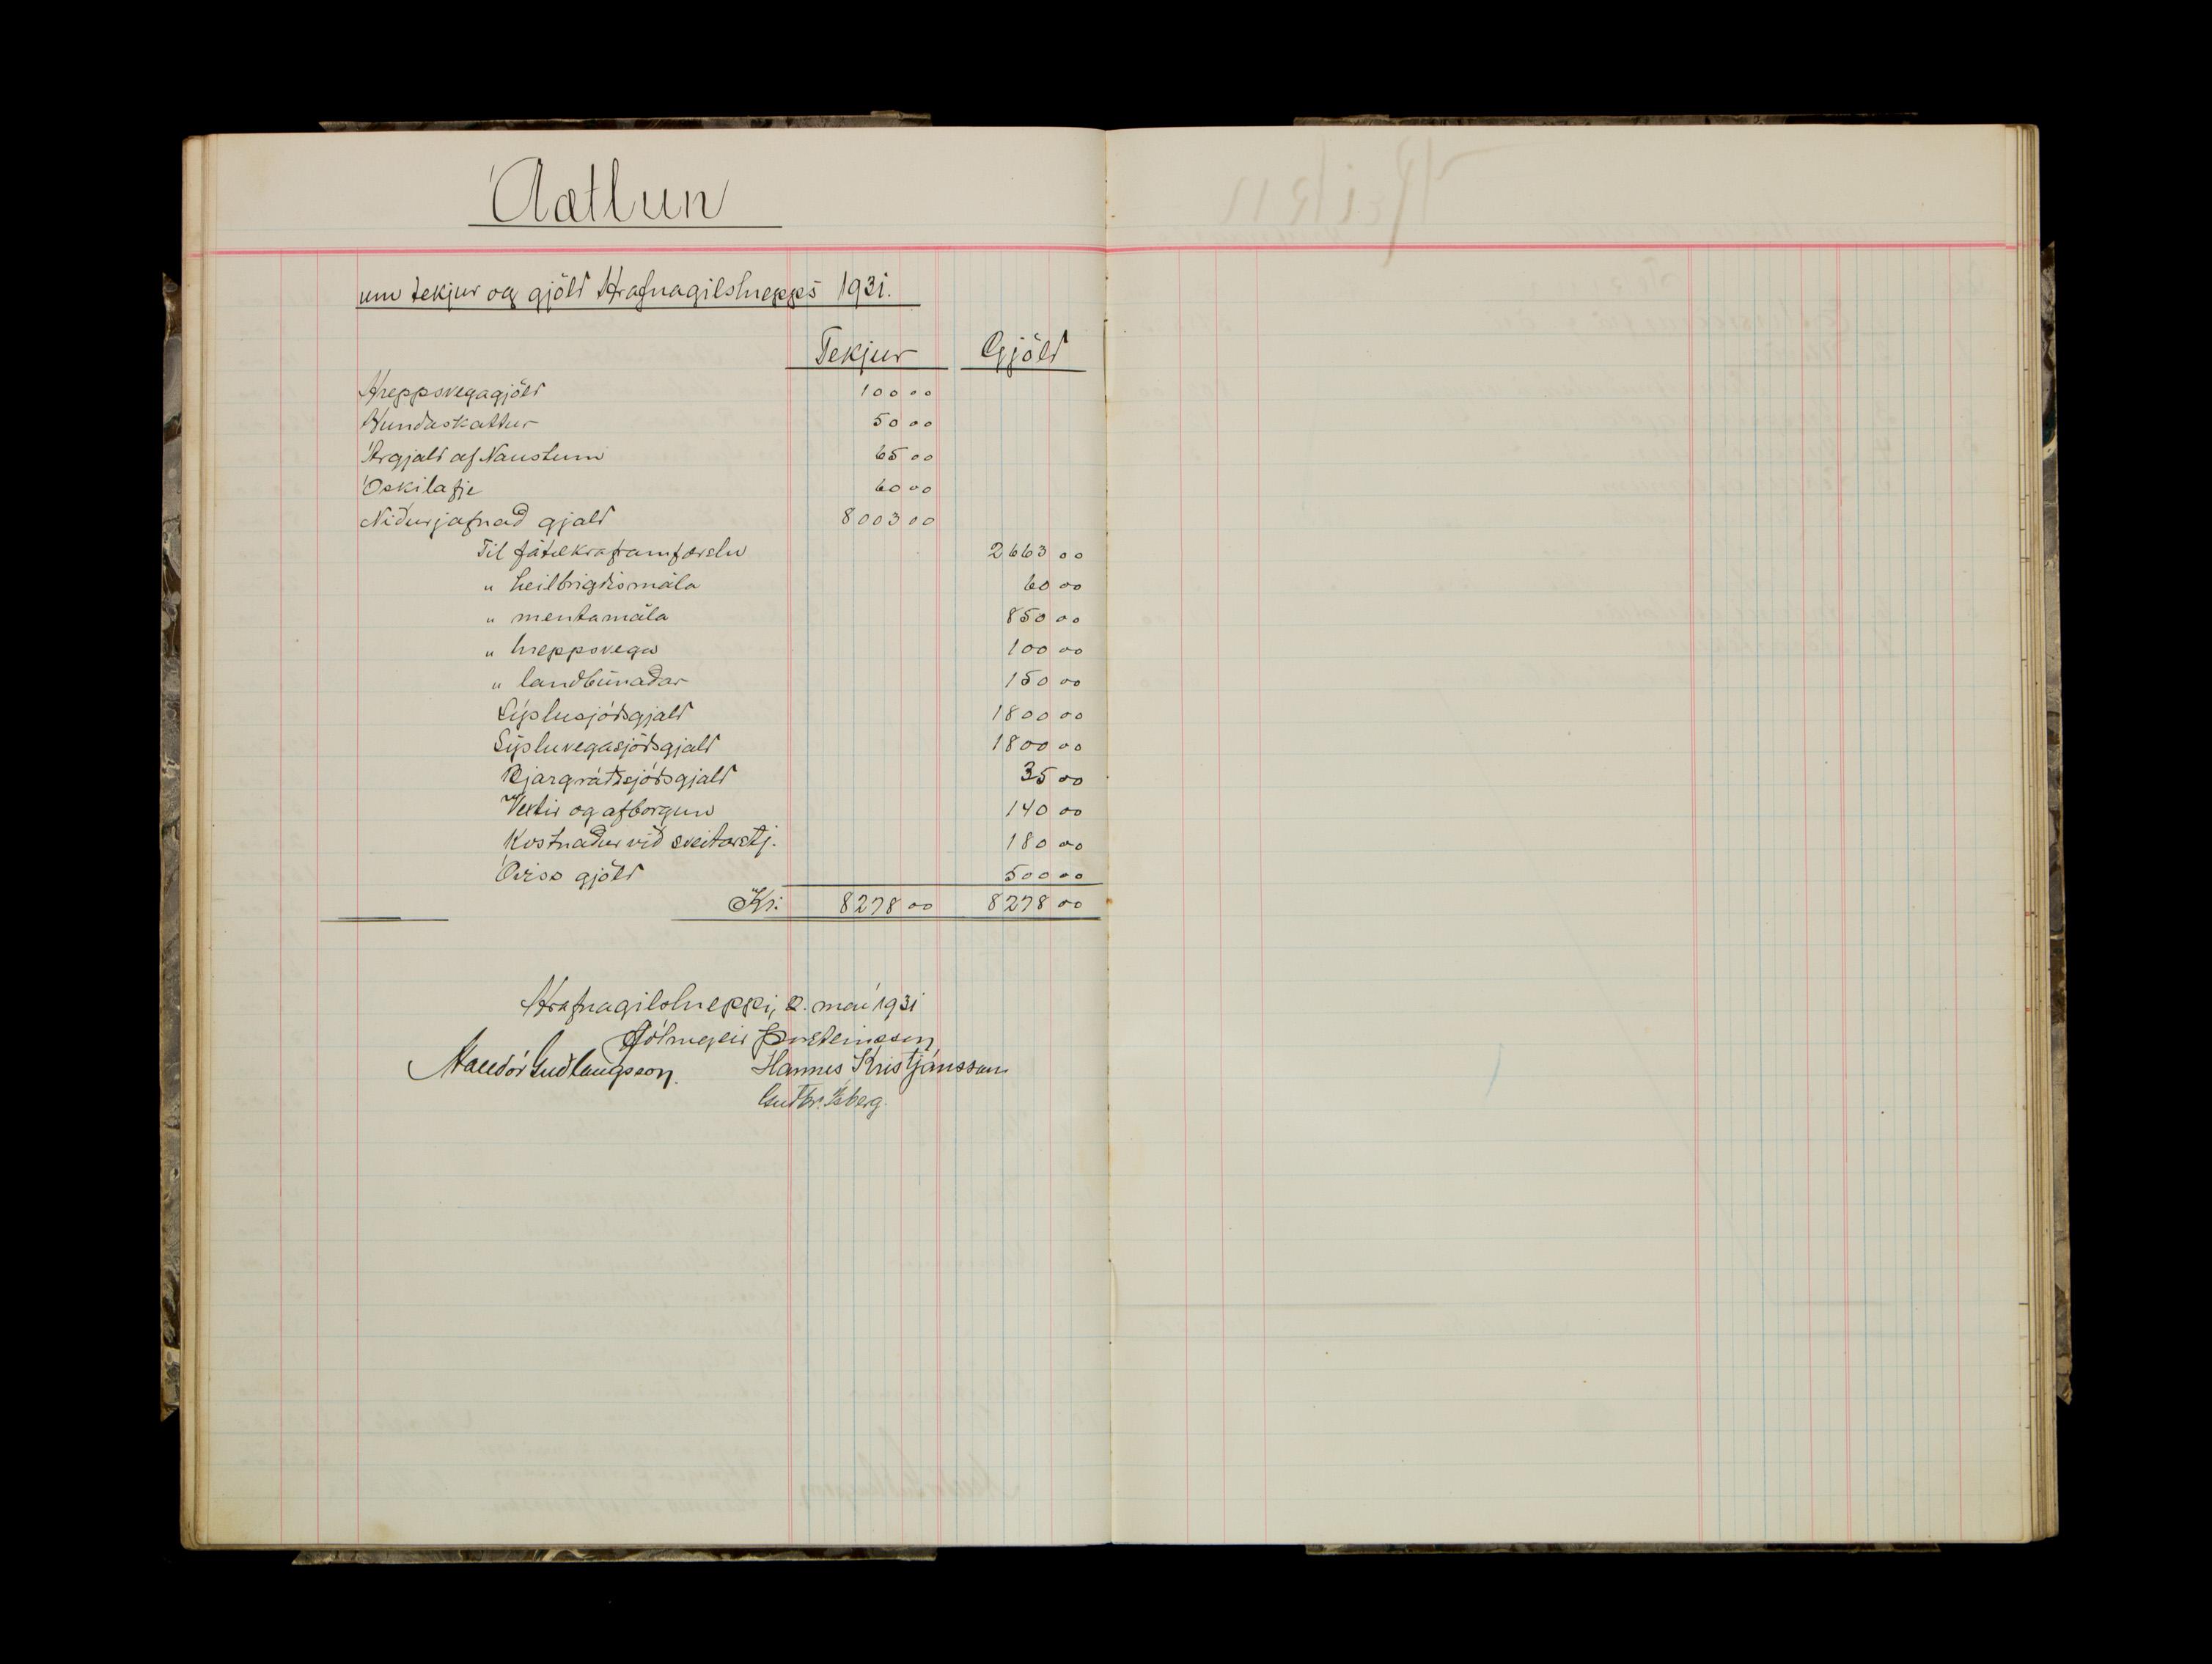 Áætlun
um tekjur og gjöld Hrafnagilshrepps 1931.
Tekjur Gjöld
Hreppsvegagjöld 100 00
Hundaskattur 50 00
Árgjald af Naustum 65 00
Óskilafje 60 00
Niðurjafnað gjald 8003 00
Til fátækraframfærslu 2663 00
" heilbrigðismála 60 00
" mentamála 850 00
" hreppsvega 100 00
" landbúnaðar 150 00
Sýslusjóðsgjald 1800 00
Sýsluvegasjóðsgjald 1800 00
Bjargráðasjóðsgjald 35 00
Vextir og afborgun 140 00
Kostnaður við sveitarstj. 180 00
Óviss gjöld 500 00
Kr. 8278 00 8278 00
Hrafnagilshreppi, 2. maí 1931
Hólmgeir Þorsteinsson
Halldór Guðlaugsson. Hannes Kristjánsson
Guðbr. Ísberg.